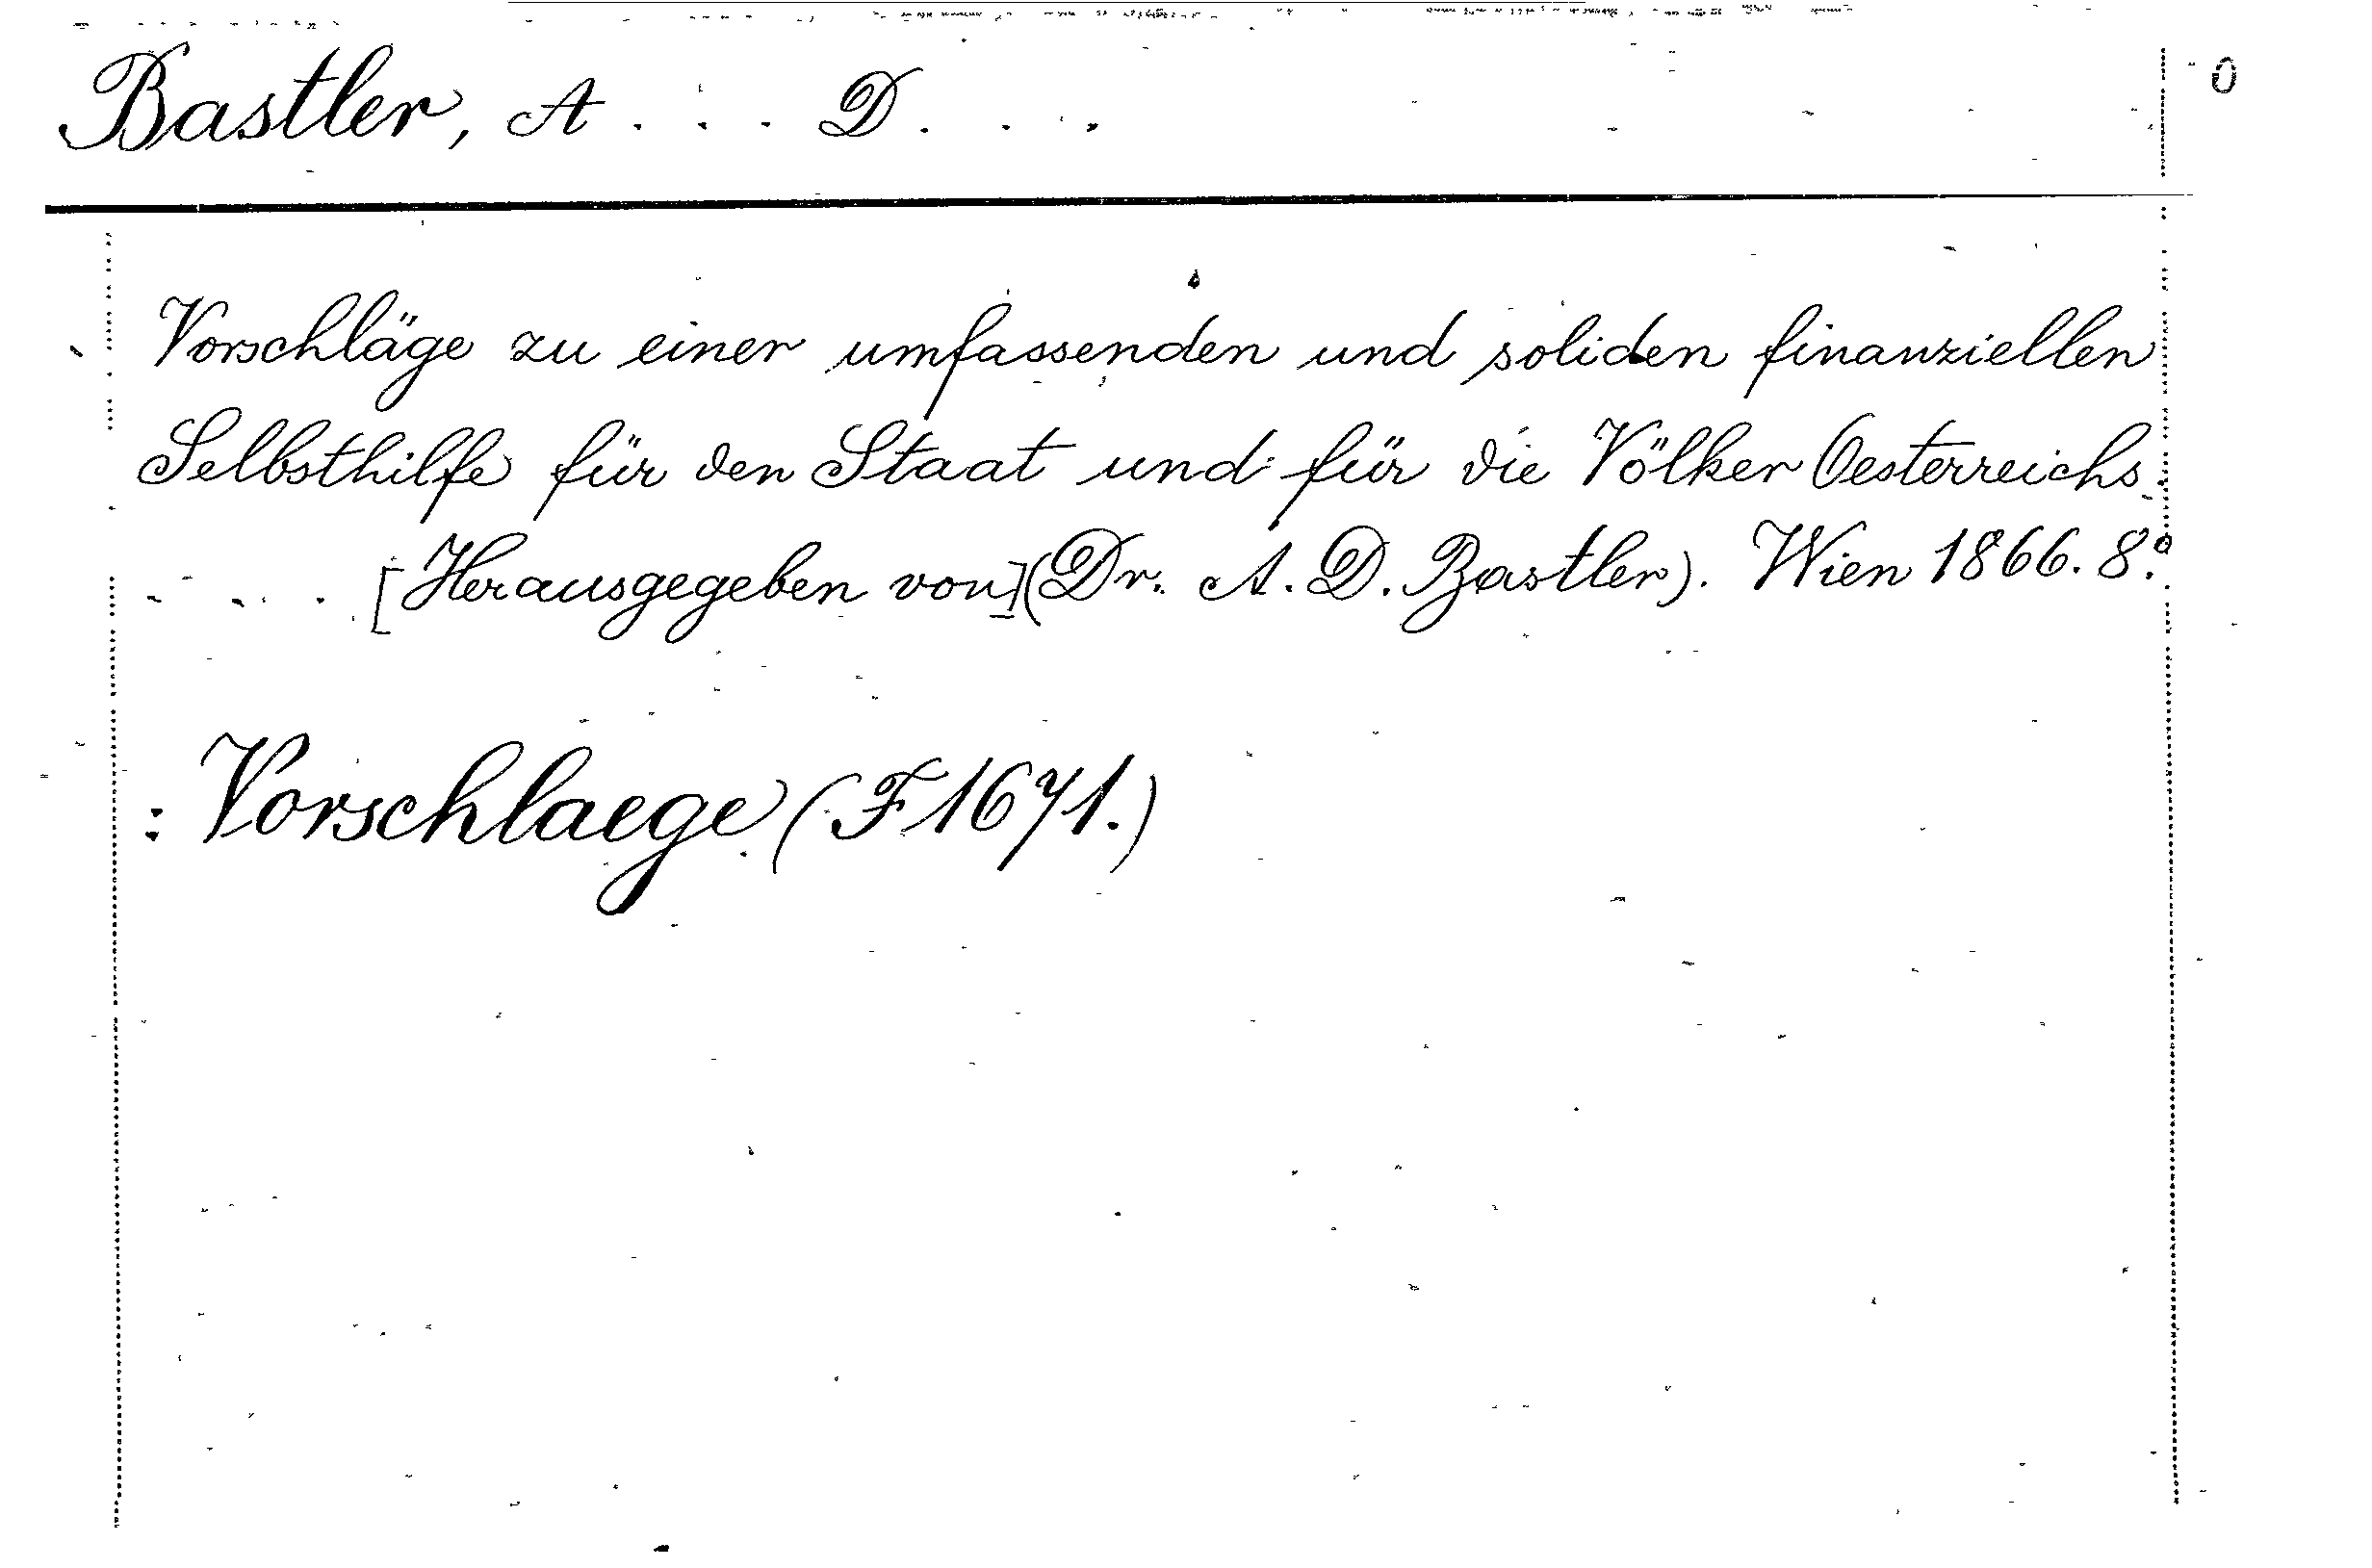 Bastler, A . . . D. . . .
0
Vorschläge zu einer umfassenden und soliden finanziellen
Selbsthilfe für den Staat und für die Völker Oesterreichs.
. . . . [Herausgegeben von](Dr. A. D. Bastler). Wien 1866. 8.°
: Vorschlaege (F 1671.)